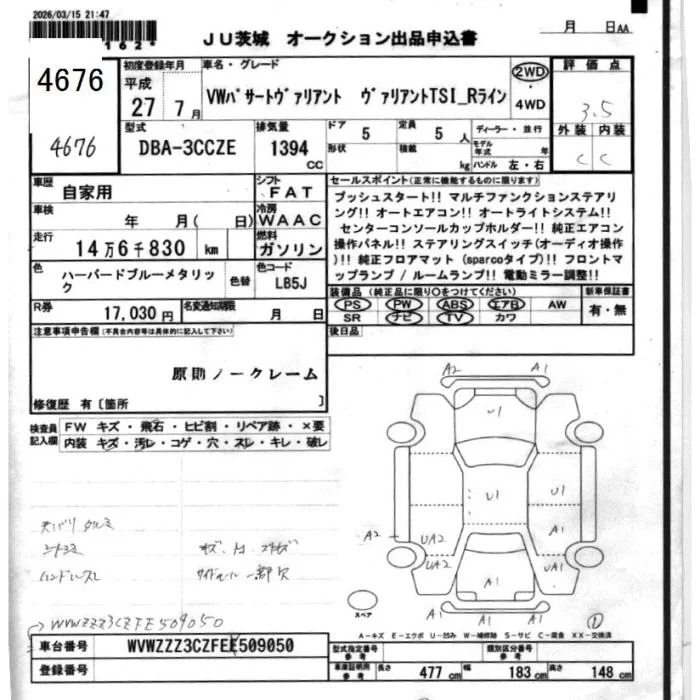 2026/03/15 21:47
162*
JU茨城 オークション出品申込書
月 日AA
4676
4676
初度登録年月
平成
27 7月
車名・グレード
VWパサートヴァリアント ヴァリアントTSI_Rライン
2WD
・
4WD
評価点
3.5
外装 内装
C C
型式
DBA-3CCZE
排気量
1394
CC
ドア 5
形状
定員 5 人
積載 kg
ディーラー・並行
モデル年式 年
ハンドル 左・右
車歴
自家用
シフト
FAT
車検
年 月( 日)
冷房
WAAC
走行
14万6千830 km
燃料
ガソリン
色
ハーバードブルーメタリック
色替
色コード
LB5J
R券
17,030円
名変通知期限
月 日
セールスポイント(正常に機能するものに限ります)
プッシュスタート!! マルチファンクションステアリ
ング!! オートエアコン!! オートライトシステム!!
センターコンソールカップホルダー!! 純正エアコン
操作パネル!! ステアリングスイッチ(オーディオ操作
)!! 純正フロアマット (sparcoタイプ)!! フロントマ
ップランプ / ルームランプ!! 電動ミラー調整!!
装備品 (純正品に限り○をつけてください)
新車保証書
PS PW ABS エアB AW
有・無
SR ナビ TV カワ
後日品
注意事項申告欄(不具合内容等は具体的に記入して下さい)
原則ノークレーム
修復歴 有〔箇所 〕
検査員記入欄
FW キズ・飛石・ヒビ割・リペア跡・×要
内装 キズ・汚レ・コゲ・穴・スレ・キレ・破レ
天バリ タルミ
シートヨゴレ
キズ、
ハンドルスレ
一部欠
A2 A1
U1
U1
U1
A1
A2
UA2
UA2
UA1
A1
A1 A2
スペア
①
A-キズ E-エクボ U-凹み W-補修跡 S-サビ C-腐食 XX-交換済
WVWZZZ3CZFE509050
車台番号
WVWZZZ3CZFE509050
登録番号
型式指定番号
参考
類別区分番号
参考
車庫証明用
参考
長さ 477 cm 幅 183 cm 高さ 148 cm